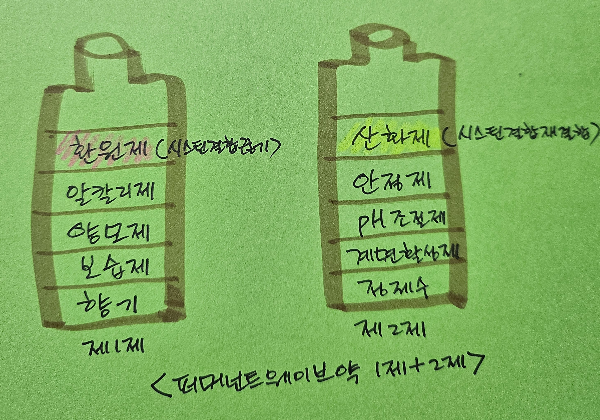 환원제 (시스틴결합끊기)
알칼리제
양모제
보습제
향기
제1제
산화제 (시스틴결합재결합)
안정제
pH조절제
계면활성제
정제수
제2제
<퍼머넌트웨이브약 1제+2제>